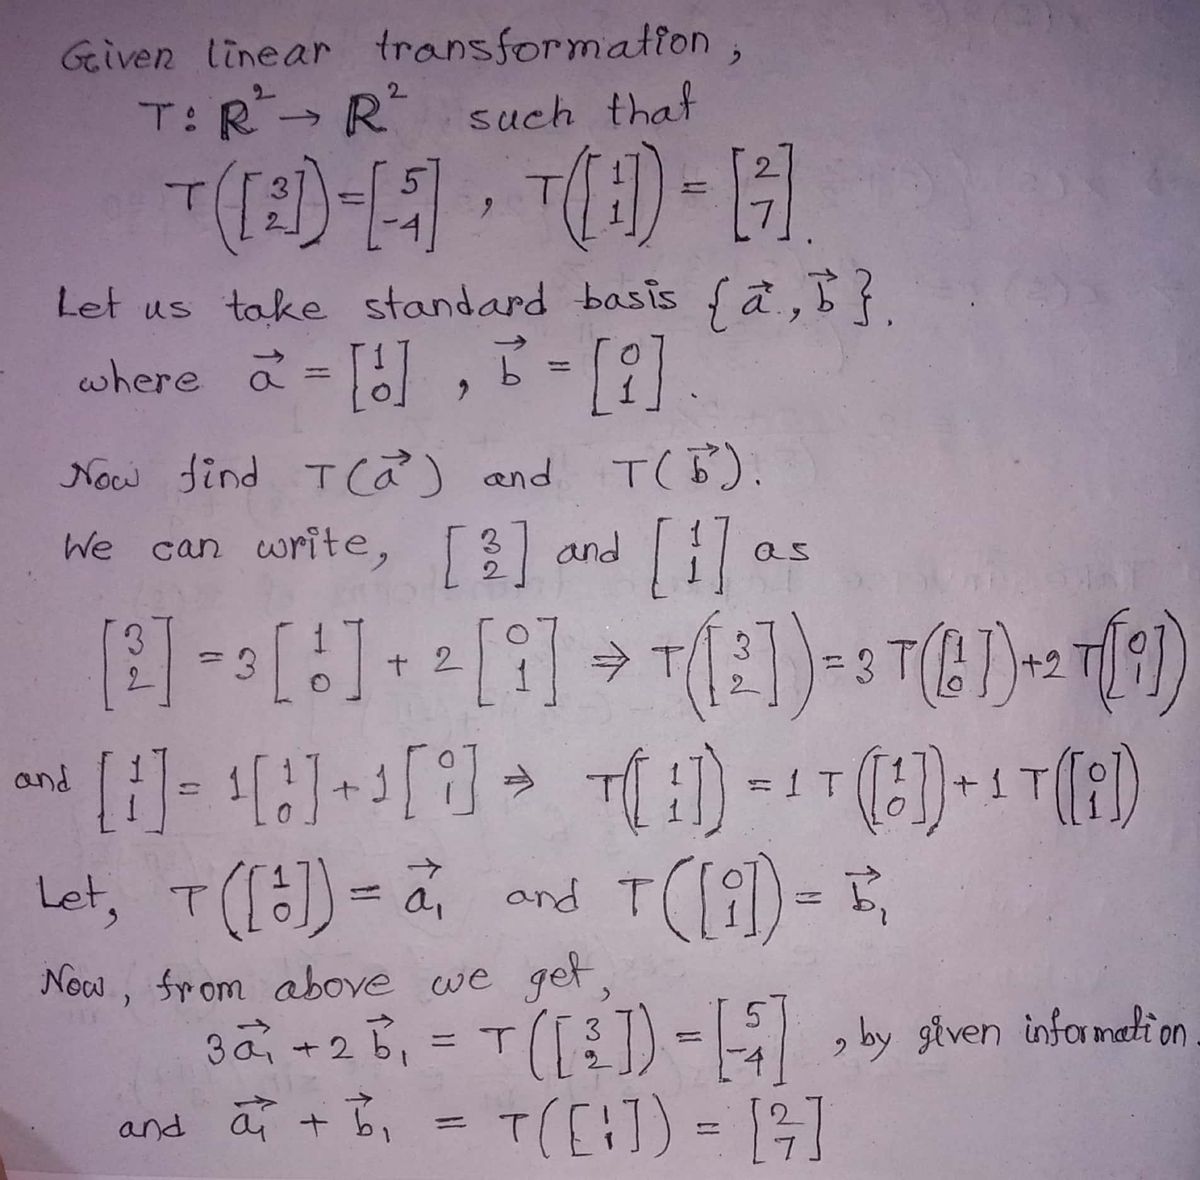 Given linear transformation,
T: ℝ² → ℝ² such that
T([3 2]) = [5 -4] , T([1 1]) = [2 7].
Let us take standard basis {a⃗, b⃗}.
where a⃗ = [1 0] , b⃗ = [0 1].
Now find T(a⃗) and T(b⃗).
We can write, [3 2] and [1 1] as
[3 2] = 3[1 0] + 2[0 1] ⇒ T([3 2]) = 3T([1 0]) + 2T([0 1])
and [1 1] = 1[1 0] + 1[0 1] ⇒ T([1 1]) = 1T([1 0]) + 1T([0 1])
Let, T([1 0]) = a⃗₁ and T([0 1]) = b⃗₁
Now, from above we get,
3a⃗₁ + 2b⃗₁ = T([3 2]) = [5 -4] , by given information.
and a⃗₁ + b⃗₁ = T([1 1]) = [2 7]